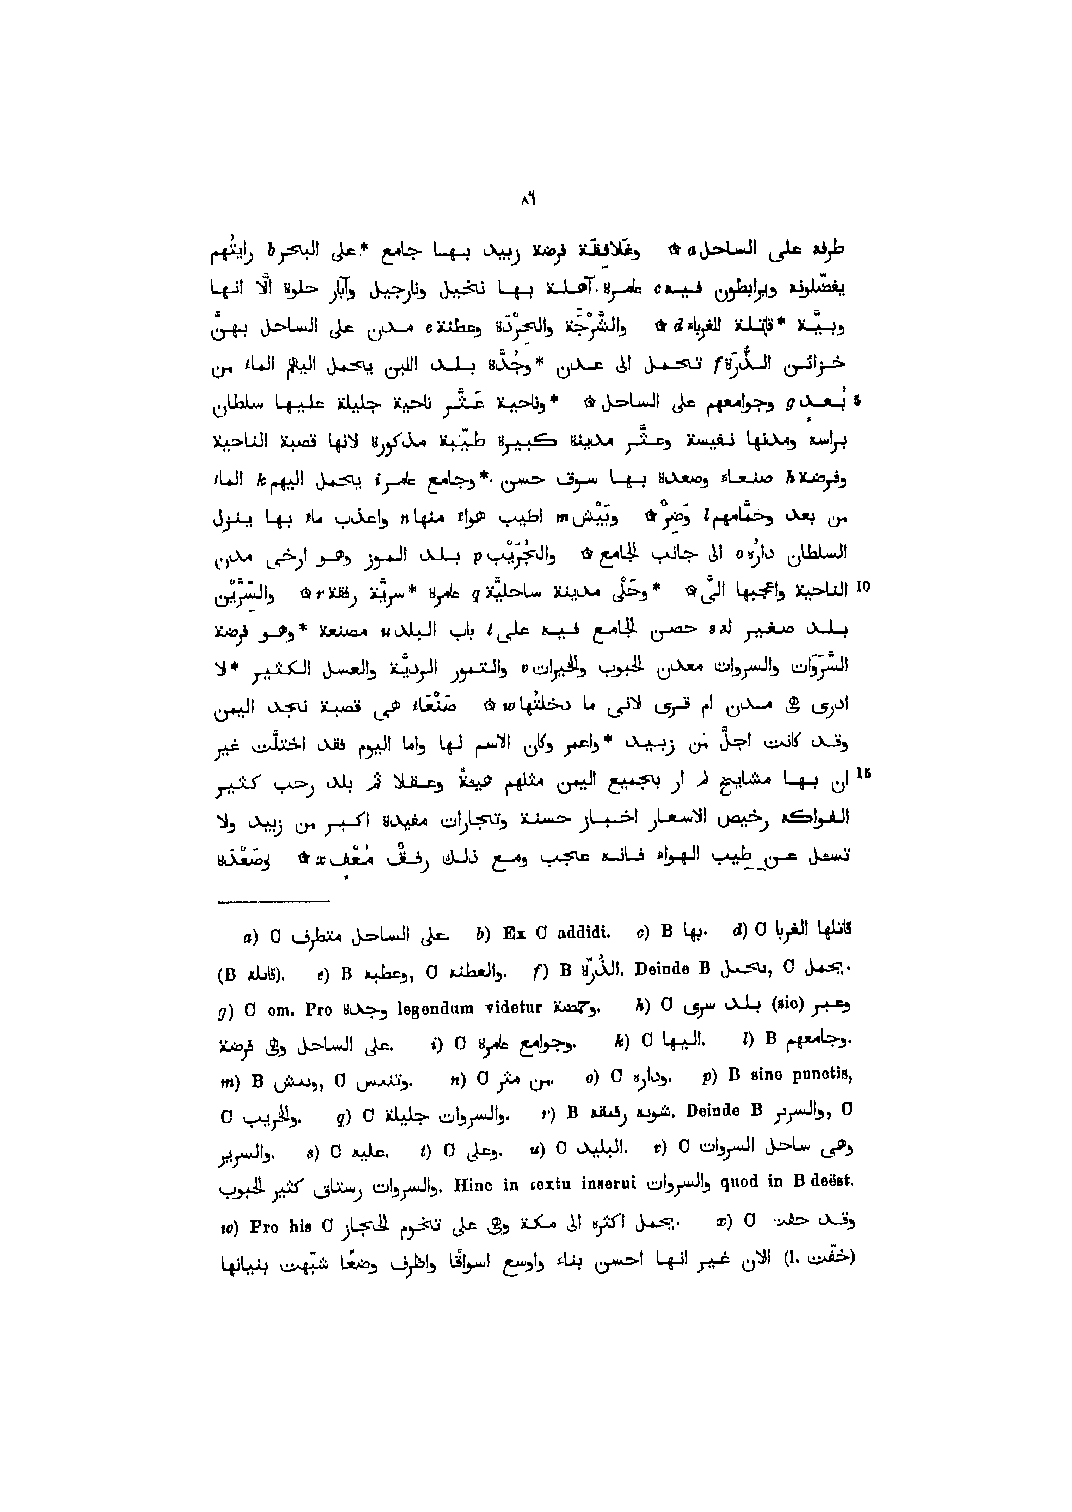 ٨٦
طرفه على الساحل a ۞ وغَلافِقَة فرضة زبيد بها جامع *على البحر b رايتهم
يفضّلونه ويرابطون فيه c عامرة آهلة بها نخيل ونارجيل وآبار حلوة الّا انها
وبيّة *قاتلة للغرباء d ۞ والشَّرْجَة والحِرْدَة وعطنة e مدن على الساحل بهنّ
خزائن الذُّرَة f تحمل الى عدن *وجُدَّة بلد اللبن يحمل اليهم الماء من
5 بُعد g وجوامعهم على الساحل ۞ *وناحية عَثَّر ناحية جليلة عليها سلطان
براسه ومدنها نفيسة وعثَّر مدينة كبيرة طيّبة مذكورة لانها قصبة الناحية
وفرضة h صنعاء وصعدة بها سوق حسن *وجامع عامر i يحمل اليهم k الماء
من بعد وحمّامهم l وَضِرٌ ۞ وبَيْش m اطيب هواء منها n واعذب ماء بها ينزل
السلطان داره o الى جانب الجامع ۞ والجُرَيْب p بلد الموز وهو ارخى مدن
10 الناحية واعجبها الىّ ۞ *وحَلْى مدينة ساحليّة q عامرة *سريّة رفقة r ۞ والسِّرَّيْن
بلد صغير له s حصن الجامع فيه على t باب البلد u مصنعة *وهو فرضة
السَّرَوَات والسروات معدن الحبوب والخيرات v والتمور الرديّة والعسل الكثير *لا
ادرى هى مدن ام قرى لانى ما دخلتُها w ۞ صَنْعَاء هى قصبة نجد اليمن
وقد كانت اجلَّ من زبيد *واعمر وكان الاسم لها واما اليوم فقد اختلّت غير
15 ان بها مشايخ لم ار بجميع اليمن مثلهم هيئةً وعقلا ثم بلد رحب كثير
الفواكه رخيص الاسعار اخباز حسنة وتجارات مفيدة اكبر من زبيد ولا
تسعل عن طيب الهواء فانه عجب ومع ذلك رفقٌ مُعْفٍ x ۞ وصَعْدَة
a) C على الساحل متطرف. b) Ex C addidi. c) B بها. d) C قاتلها الغربا
(B قابله). e) B وعطيه, C والعطنه. f) B الذُرّة. Deinde B بحمل, C يحمل.
g) C om. Pro وجدة legendum videtur وحمضة. h) C بلد سرى (sic) وعبر
على الساحل وهى فرضة. i) C وجوامع عامرة. k) C اليها. l) B وجامعهم.
m) B وىىش, C وتنفس. n) C من عثر. o) C وداره. p) B sine punctis,
C والخريب. q) C والسروات جليلة. r) B شوبه رفيقه. Deinde B والسرىر, C
والسرير. s) C عليه. t) C وعلى. u) C البليد. v) C وهى ساحل السروات
والسروات رستاق كثير الحبوب. Hinc in textu inserui والسروات quod in B deëst.
w) Pro his C يحمل اكثره الى مكة وهى على تخوم الحجاز. x) C وقد حفت
(l. خفّت) الان غير انها احسن بناء واوسع اسواقا واظرف وضعًا شبّهت بنيانها